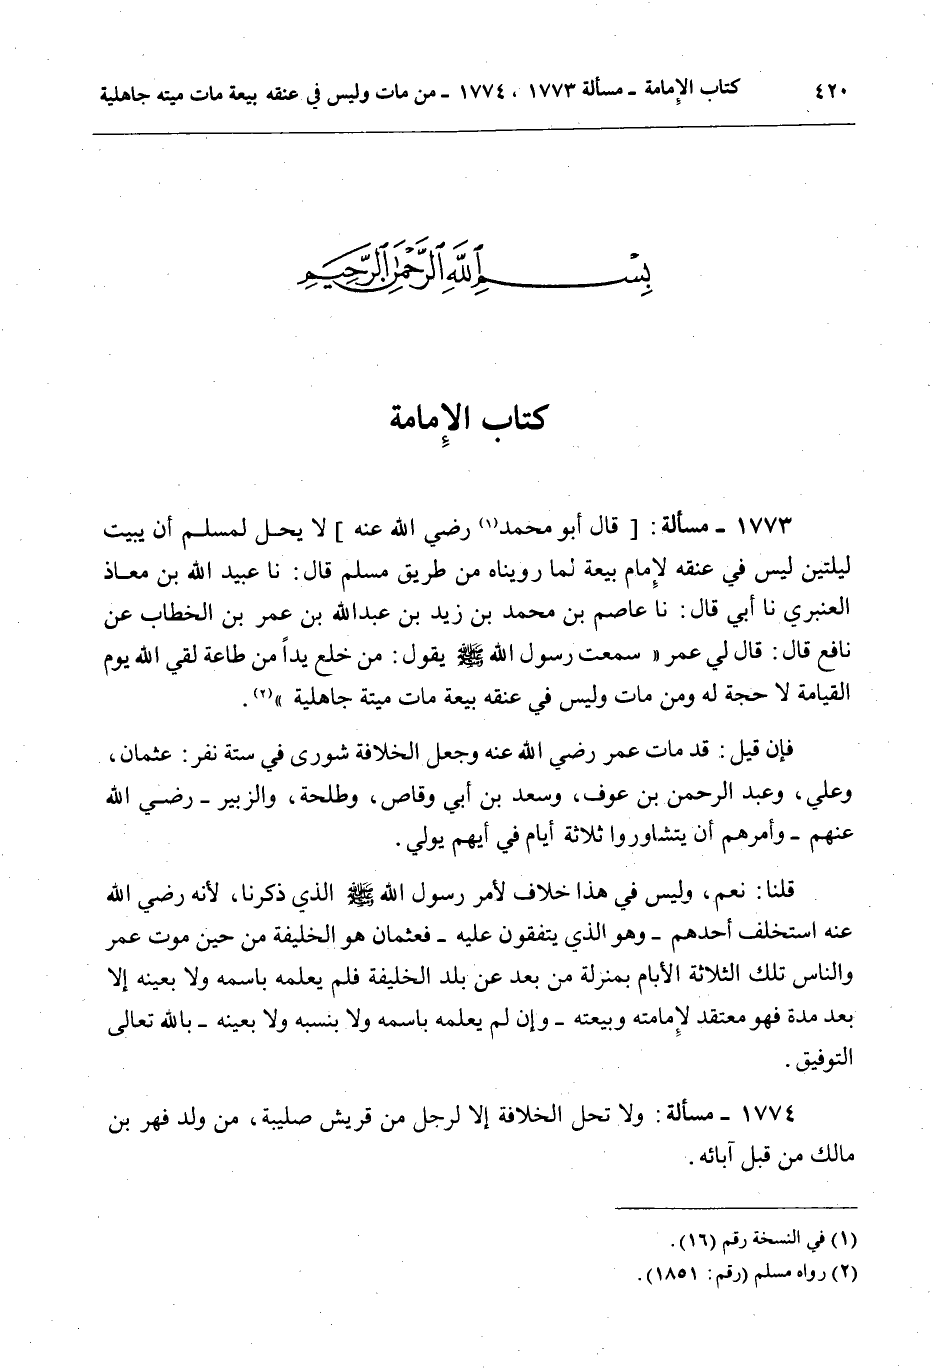 ٤٢٠ كتاب الإمامة ـ مسألة ١٧٧٣ ، ١٧٧٤ ـ من مات وليس في عنقه بيعة مات ميته جاهلية
بسم الله الرحمن الرحيم
كتاب الإمامة
١٧٧٣ ـ مسألة : [ قال أبو محمد(١) رضي الله عنه ] لا يحل لمسلم أن يبيت
ليلتين ليس في عنقه لإمام بيعة لما رويناه من طريق مسلم قال : نا عبيد الله بن معاذ
العنبري نا أبي قال : نا عاصم بن محمد بن زيد بن عبدالله بن عمر بن الخطاب عن
نافع قال : قال لي عمر « سمعت رسول الله ﷺ يقول : من خلع يداً من طاعة لقي الله يوم
القيامة لا حجة له ومن مات وليس في عنقه بيعة مات ميتة جاهلية »(٢) .
فإن قيل : قد مات عمر رضي الله عنه وجعل الخلافة شورى في ستة نفر : عثمان ،
وعلي ، وعبد الرحمن بن عوف ، وسعد بن أبي وقاص ، وطلحة ، والزبير ـ رضي الله
عنهم ـ وأمرهم أن يتشاوروا ثلاثة أيام في أيهم يولي .
قلنا : نعم ، وليس في هذا خلاف لأمر رسول الله ﷺ الذي ذكرنا ، لأنه رضي الله
عنه استخلف أحدهم ـ وهو الذي يتفقون عليه ـ فعثمان هو الخليفة من حين موت عمر
والناس تلك الثلاثة الأيام بمنزلة من بعد عن بلد الخليفة فلم يعلمه باسمه ولا بعينه إلا
بعد مدة فهو معتقد لإمامته وبيعته ـ وإن لم يعلمه باسمه ولا بنسبه ولا بعينه ـ بالله تعالى
التوفيق .
١٧٧٤ ـ مسألة : ولا تحل الخلافة إلا لرجل من قريش صليبة ، من ولد فهر بن
مالك من قبل آبائه .
(١) في النسخة رقم (١٦) .
(٢) رواه مسلم (رقم : ١٨٥١) .